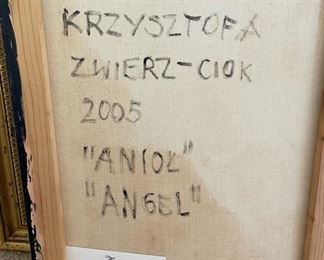 KRZYSZTOFA
ZWIERZ-CIOK
2005
"ANIOŁ"
"ANGEL"